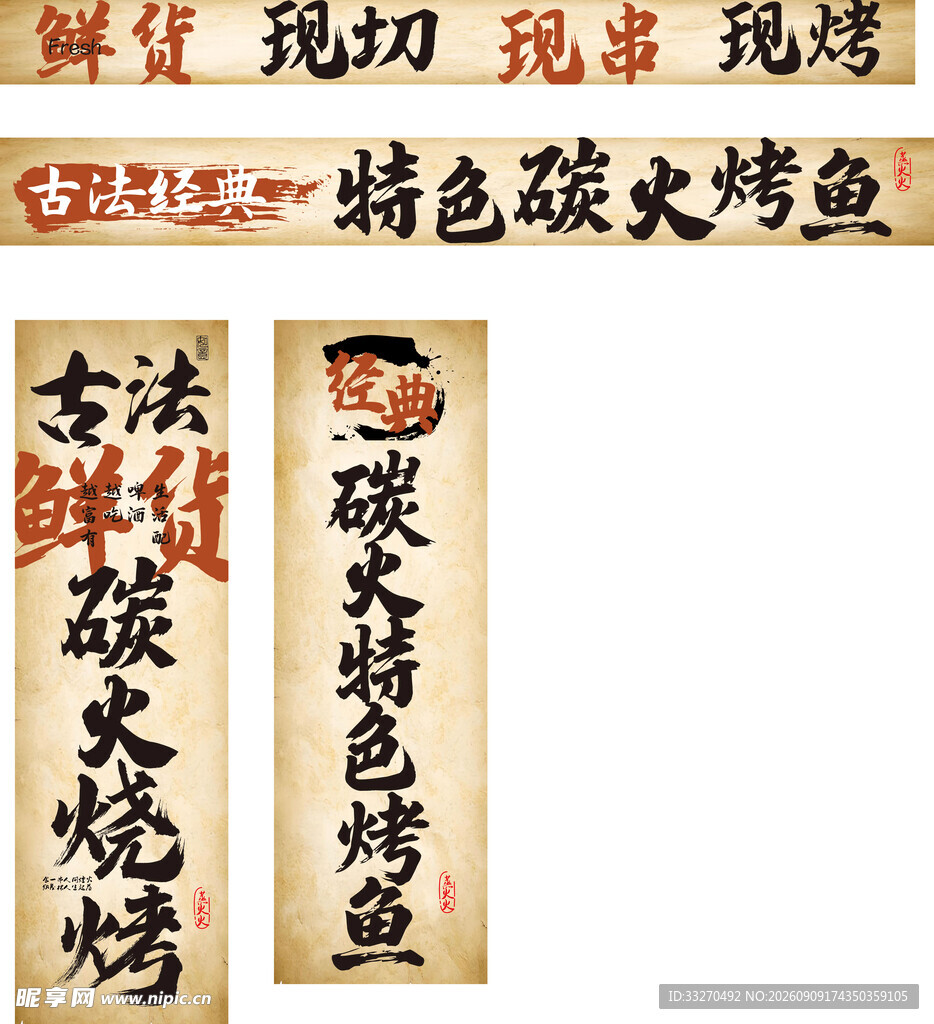 鲜货 现切 现串 现烤
Fresh
古法经典 特色碳火烤鱼
古法
鲜货
生活配
啤酒
越吃
越富有
碳火烧烤
经典
碳火特色烤鱼
昵享网 www.nipic.cn
ID:33270492 NO:20260909174350359105